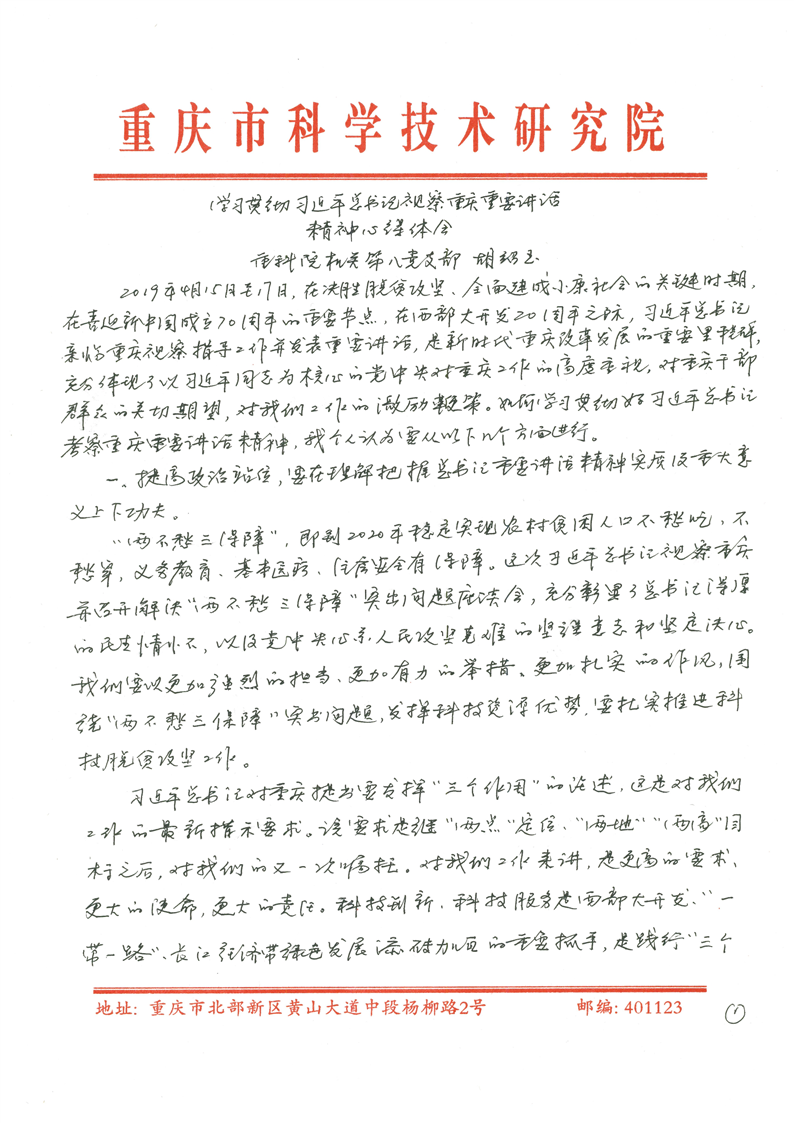 重庆市科学技术研究院
学习贯彻习近平总书记视察重庆重要讲话
精神心得体会
市科院机关第八党支部 胡
2019年4月15日至17日，在决胜脱贫攻坚、全面建成小康社会的关键时期，
在喜迎新中国成立70周年的重要节点，在西部大开发20周年之际，习近平总书记
亲临重庆视察指导工作并发表重要讲话，是新时代重庆改革发展的重要里程碑，
充分体现了以习近平同志为核心的党中央对重庆工作的高度重视，对重庆干部
群众的关切期望，对我们工作的激励鞭策。如何学习贯彻好习近平总书记
考察重庆重要讲话精神，我个人认为要从以下几个方面进行。
一、提高政治站位，要在理解把握总书记重要讲话精神实质及重大意
义上下功夫。
“两不愁三保障”，即到2020年稳定实现农村贫困人口不愁吃、不
愁穿，义务教育、基本医疗、住房安全有保障。这次习近平总书记视察重庆
并召开解决“两不愁三保障”突出问题座谈会，充分彰显了总书记深厚
的民生情怀，以及党中央心系人民攻坚克难的坚强意志和坚定决心。
我们要以更加强烈的担当、更加有力的举措、更加扎实的作风，围
绕“两不愁三保障”突出问题，发挥科技资源优势，要扎实推进科
技脱贫攻坚工作。
习近平总书记对重庆提出要发挥“三个作用”的论述，这是对我们
工作的最新指示要求。该要求是继“两点”定位、“两地”“两高”目
标之后，对我们的又一次嘱托。对我们工作来讲，是更高的要求、
更大的使命，更大的责任。科技创新、科技服务是西部大开发、“一
带一路”、长江经济带绿色发展添砖加瓦的重要抓手，是践行“三个
地址：重庆市北部新区黄山大道中段杨柳路2号 邮编：401123
①